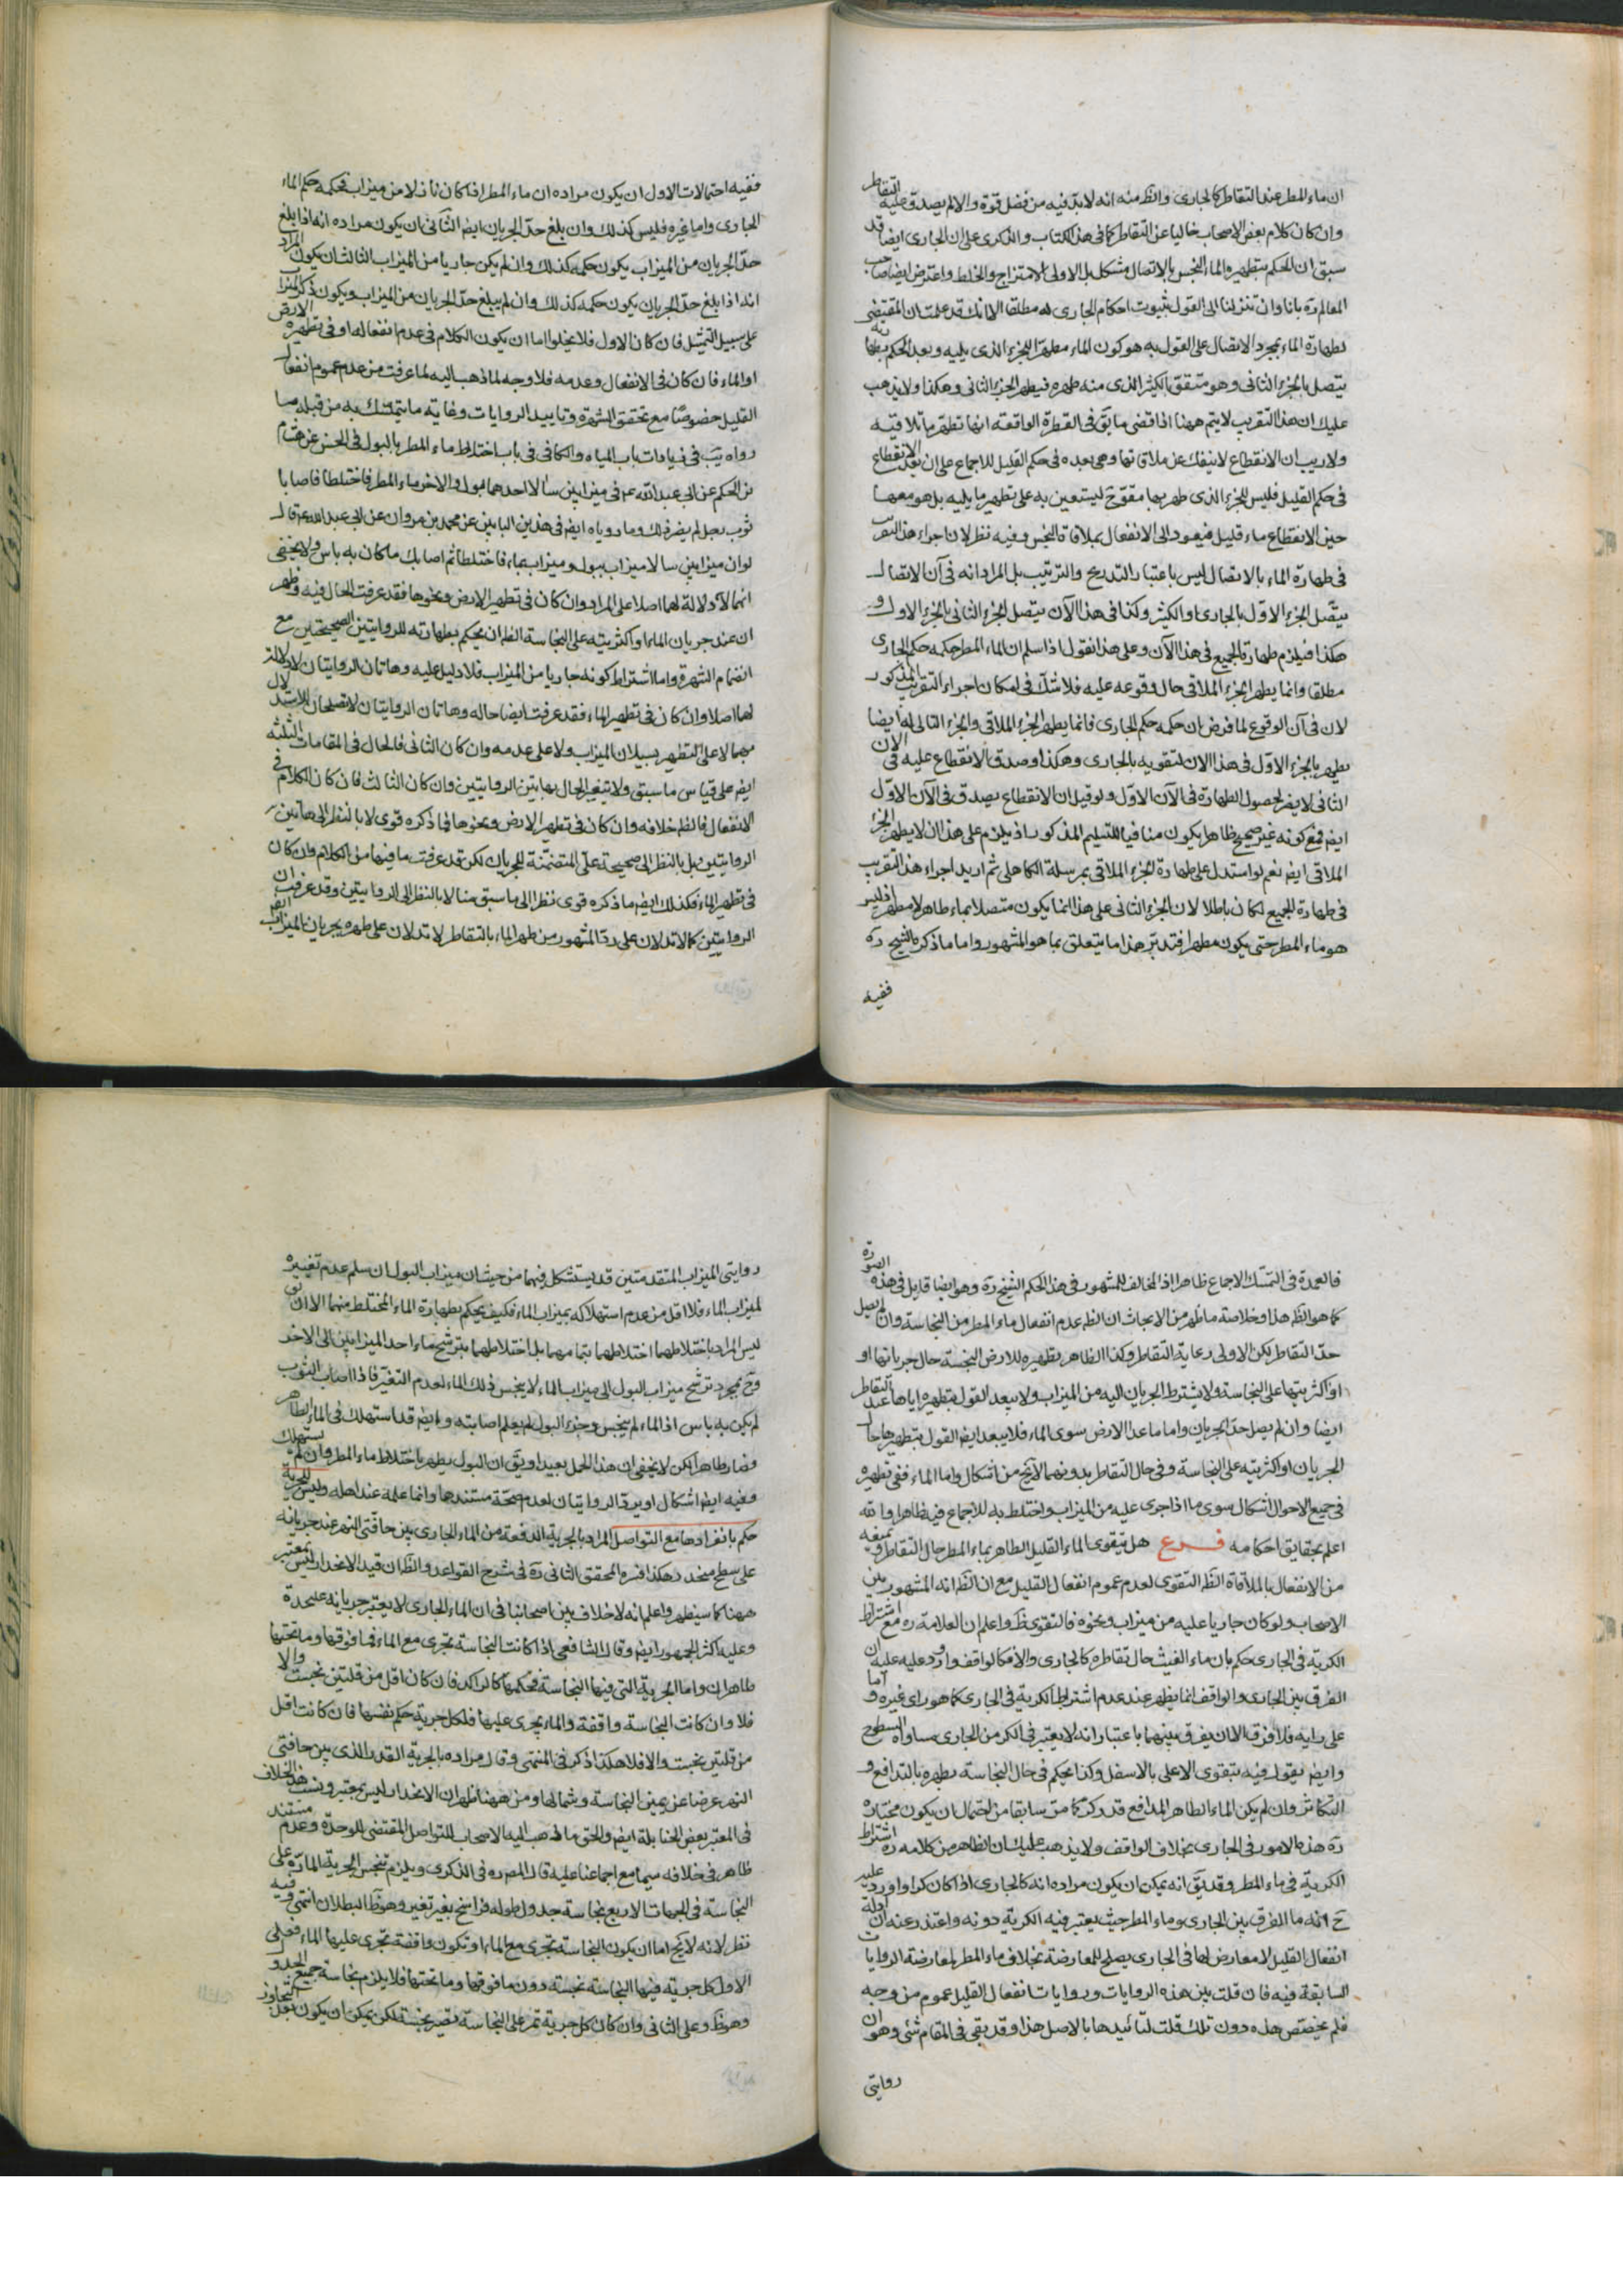 ان ماء المطر عند التقاطر كالجارى والظ منه انه لا بد فيه من فضل قوة والا لم يصدق عليه التقاطر
وان كان كلام بعض الاصحاب خاليا عن التقاطر كما فى هذا الكتاب والذكرى على ان الجارى ايضا قد
سبق ان الحكم بتطهيره الماء النجس بالاتصال مشكل بل الاولى الامتزاج والخلط واعترض ايضا صاحب
المعالم ره بانا وان تنزلنا الى القول بثبوت احكام الجارى له مطلقا الا انك قد علمت ان المقتضى
لطهارة الماء بمجرد الاتصال على القول به هو كون الماء مطهرا للجزء الذى يليه وبعد الحكم بطهارته
يتصل بالجزء الثانى وهو متقو بالكثير الذى منه طهره فيطهر الجزء الثانى وهكذا ولا يذهب
عليك ان هذا التقريب لا يتم ههنا اذ اقضى ما يق فى القطرة الواقعة انها تطهر ما تلاقيه
ولا ريب ان الانقطاع لا ينفك عن ملاقاتها وهى بعده فى حكم القليل للاجماع على ان بعد الانقطاع
فى حكم القليل فليس للجزء الذى طهر بها مقو ح ليستعين به على تطهير ما يليه بل هو معها
حين الانقطاع ماء قليل فيعود الى الانفعال بملاقاة النجس وفيه نظر لان اجراء هذا التقريب
فى طهارة الماء بالاتصال ليس باعتبار التدريج والترتيب بل المراد انه فى آن الاتصال
يتصل الجزء الاول بالجارى او الكثير وكذا فى هذا الآن يتصل الجزء الثانى بالجزء الاول و
هكذا فيلزم طهارة الجميع فى هذا الآن وعلى هذا نقول اذا سلم ان الماء المطر حكمه حكم الجارى
مطلقا وانما يطهر الجزء الملاقى حال وقوعه عليه فلا شك فى امكان اجراء التقريب المذكور
لان فى آن الوقوع لما فرض ان حكمه حكم الجارى فانما يطهر الجزء الملاقى والجزء التالى له ايضا
يطهر بالجزء الاول فى هذا الان لتقويه بالجارى وهكذا وصدق الانقطاع عليه فى الان
الثانى لا يضر لحصول الطهارة فى الآن الاول ولو قيل ان الانقطاع يصدق فى الآن الاول
ايضا فمع كونه غير صحيح ظاهرا يكون منافيا للتسليم المذكور اذ يلزم على هذا ان لا يطهر الجزء
الملاقى ايضا نعم لو استدل على طهارة الجزء الملاقى بمرسلة الكاهلى ثم اريد اجراء هذا التقريب
فى طهارة الجميع لكان باطلا لان الجزء الثانى على هذا انما يكون متصلا بماء طاهر لا مطهر اذ ليس
هو ماء المطر حتى يكون مطهرا فتدبر هذا ما يتعلق بما هو المشهور واما ما ذكره الشيخ ره
ففيه
ففيه احتمالات الاول ان يكون مراده ان ماء المطر اذا كان نازلا من ميزاب فحكمه حكم الماء
الجارى واما غيره فليس كذلك وان بلغ حد الجريان ايضا الثانى ان يكون مراده انه اذا بلغ
حد الجريان من الميزاب يكون حكمه كذلك وان لم يكن جاريا من الميزاب الثالث ان يكون المراد
انه اذا بلغ حد الجريان يكون حكمه كذلك وان لم يبلغ حد الجريان من الميزاب ويكون ذكر الميزاب
على سبيل التمثيل فان كان الاول فلا يخلوا اما ان يكون الكلام فى عدم انفعاله او فى تطهيره الارض
او الماء فان كان فى الانفعال وعدمه فلا وجه لما ذهب اليه لما عرفت من عدم عموم انفعال
القليل خصوصا مع تحقق الشهرة وتاييد الروايات وغاية ما يتمسك به من قبله ما
رواه يب فى زيادات باب المياه والكافى فى باب اختلاط ماء المطر بالبول فى الحسن عن هشام
بن الحكم عن ابى عبد الله ع فى ميزابين سالا احدهما بول والاخر ماء المطر فاختلطا فاصابا
ثوب رجل لم يضر ذلك وما روياه ايضا فى هذين البابين عن محمد بن مروان عن ابى عبد الله ع قال
لو ان ميزابين سالا ميزاب ببول وميزاب بماء فاختلطا ثم اصابك ما كان به باس ولا يخفى
انهما لا دلالة لهما اصلا على المراد وان كان فى تطهير الارض ونحوها فقد عرفت الحال فيه وظهر
ان عند جريان الماء او اكثريته على النجاسة الظ ان يحكم بطهارته للروايتين الصحيحتين مع
انضمام الشهرة واما اشتراط كونه جاريا من الميزاب فلا دليل عليه وهاتان الروايتان لا دلالة
لهما اصلا وان كان فى تطهير الماء فقد عرفت ايضا حاله وهاتان الروايتان لا تصلحان للاستدلال
بهما لا على التطهير بسيلان الميزاب ولا على عدمه وان كان الثانى فالحال فى المقامات الثلثة
ايضا على قياس ما سبق ولا يتغير الحال بهاتين الروايتين وان كان الثالث فان كان الكلام فى
الانفعال فالظ خلافه وان كان فى تطهير الارض ونحوها فما ذكره قوى لا بالنظر الى هاتين
الروايتين بل بالنظر الى صحيحة على المتضمنة للجريان لكن قد عرفت ما فيها من الكلام وان كان
فى تطهير الماء فكذلك ايضا ما ذكره قوى نظرا الى ما سبق منا لا بالنظر الى الروايتين وقد عرفت ان
الروايتين كما لا تدلان على رد المشهور من طهر الماء بالتقاطر لا تدلان على طهره بجريان الميزاب ايضا
فالعمدة فى التمسك الاجماع ظاهرا اذ المخالف للمشهور فى هذا الحكم الشيخ ره وهو ايضا قايل فى هذه الصورة
كما هو الظ هذا وخلاصة ما ظهر من الابحاث ان الظ عدم انفعال ماء المطر من النجاسة وان لم يصل
حد التقاطر لكن الاولى رعاية التقاطر وكذا الظاهر تطهيره للارض النجسة حال جريانها او
او اكثريتها على النجاسة ولا يشترط الجريان اليه من الميزاب ولا يبعد القول بتطهيره اياها عند التقاطر
ايضا وان لم يصل حد الجريان واما ما عدا الارض سوى الماء فلا يبعد ايضا القول بتطهيرها حال
الجريان او اكثريته على النجاسة وفى حال التقاطر بدونهما لا يخ من اشكال واما الماء ففى تطهيره
فى جميع الاحوال اشكال سوى ما اذا جرى عليه من الميزاب واختلط به للاجماع فيه ظاهرا والله
اعلم بحقايق احكامه فرع هل يتقوى الماء القليل الطاهر بماء المطر حال التقاطر ويمنعه
من الانفعال بالملاقاة الظ التقوى لعدم عموم انفعال القليل مع ان الظ انه المشهور بين
الاصحاب ولو كان جاريا عليه من ميزاب ونحوه فالتقوى ظ واعلم ان العلامة ره مع اشتراط
الكرية فى الجارى حكم بان ماء الغيث حال تقاطره كالجارى والا فكالواقف واورد عليه ان
الفرق بين الجارى والواقف انما يظهر عند عدم اشتراط الكرية فى الجارى كما هو راى غيره واما
على رايه فلا فرق الا ان يفرق بينهما باعتبار انه لا يعتبر فى الكر من الجارى مساواة السطوح
وايضا يقول فيه بتقوى الاعلى بالاسفل وكذا يحكم فى حال النجاسة بطهره بالتدافع و
التكاثر وان لم يكن الماء الطاهر المدافع قدر كر كما مر سابقا من احتمال ان يكون مختاره
ره هذه الامور فى الجارى بخلاف الواقف ولا يذهب عليك ان الظاهر من كلامه ره اشتراط
الكرية فى ماء المطر وقد يق انه يمكن ان يكون مراده انه كالجارى اذا كان كرا واورد عليه
ح انه ما الفرق بين الجارى وماء المطر حيث يعتبر فيه الكرية دونه واعتذر عنه ان ادلة
انفعال القليل لا معارض لها فى الجارى يصلح للمعارضة بخلاف ماء المطر لمعارضة الروايات
السابقة فيه فان قلت بين هذه الروايات وروايات انفعال القليل عموم من وجه
فلم يخصص هذه دون تلك قلت لتائيدها بالاصل هذا وقد بقى فى المقام شئ وهو ان
روايتى
روايتى الميزاب المتقدمتين قد يستشكل فيهما من حيث ان ميزاب البول ان سلم عدم تغييره
لميزاب الماء فلا اقل من عدم استهلاكه بميزاب الماء فكيف يحكم بطهارة الماء المختلط منهما الا ان يق
ليس المراد باختلاطهما اختلاطهما بتمامهما بل اختلاطهما بترشح ماء احد الميزابين الى الاخر
وح بمجرد ترشح ميزاب البول الى ميزاب الماء لا ينجس ذلك الماء لعدم التغير فاذا اصاب الثوب
لم يكن به باس اذ الماء لم ينجس وجزء البول لم يعلم اصابته وايضا قد استهلك فى الماء الطاهر
وصار طاهرا لكن لا يخفى ان هذا الحمل بعيد او يق ان البول يطهر باختلاط ماء المطر وان لم يستهلك
وفيه ايضا اشكال او يرد الروايتان لعدم صحة مستندهما وانما علمه عند اهله وليس للجرية
حكم بانفرادها مع التواصل المراد بالجرية الدفعة من الماء الجارى بين حافتى النهر عند جريانه
على سطح منحدر هكذا فسره المحقق الثانى ره فى شرح القواعد والظ ان قيد الانحدار ليس بمعتبر
ههنا كما سيظهر واعلم انه لا خلاف بين اصحابنا فى ان الماء الجارى لا يعتبر جرياته عليحدة
وعليه اكثر الجمهور ايضا وقال الشافعى اذا كانت النجاسة تجرى مع الماء فما فوقها وما تحتها
طاهران واما الجرية التى فيها النجاسة فحكمها كالراكد فان كان اقل من قلتين نجست والا
فلا وان كانت النجاسة واقفة والماء يجرى عليها فلكل جرية حكم نفسها فان كانت اقل
من قلتين نجست والا فلا هكذا ذكر فى المنتهى وقال مراده بالجرية القدر الذى بين حافتى
النهر عرضا عن يمين النجاسة وشمالها ومن ههنا ظهر ان الانحدار ليس بمعتبر ونسب هذا الخلاف
فى المعتبر بعض الحنابلة ايضا والحق ما ذهب اليه الاصحاب للتواصل المقتضى للوحدة وعدم مستند
ظاهر فى خلافه سيما مع اجماعنا عليه قال المصره فى الذكرى ويلزم تنجس الجرية المارة على
النجاسة فى الجهات الاربع نجاسة جدول طوله فراسخ بغير تغير وهو ظ البطلان انتهى وفيه
نظر لانه لا يخ اما ان يكون النجاسة تجرى مع الماء او تكون واقفة تجرى عليها الماء فعلى
الاول كل جرية فيها النجاسة نجسة دون ما فوقها وما تحتها فلا يلزم نجاسة جميع الجدول
وهو ظ وعلى الثانى وان كان كل جرية تمر على النجاسة تصير نجسة لكن يمكن ان يكون بعد التجاوز